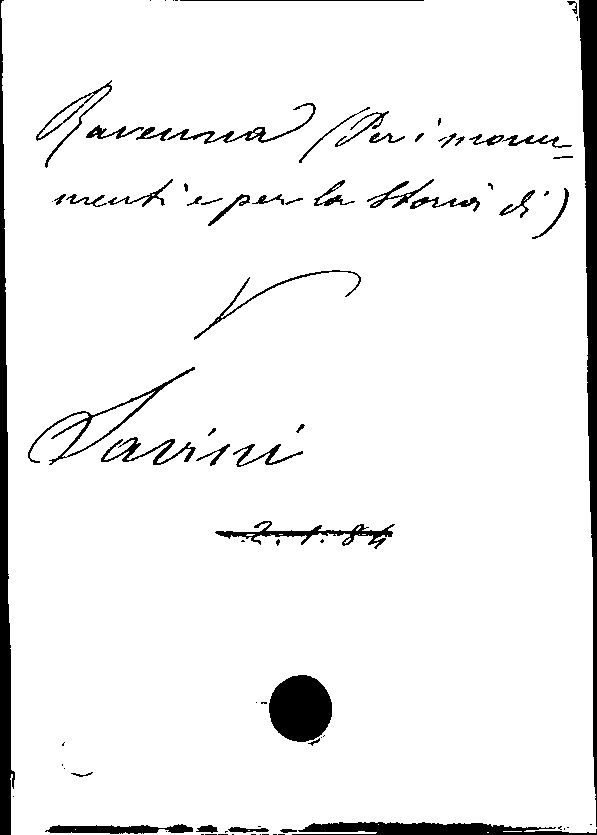 Ravenna (Per i monu-
menti e per la storia di)
V
Savini
2.1.84